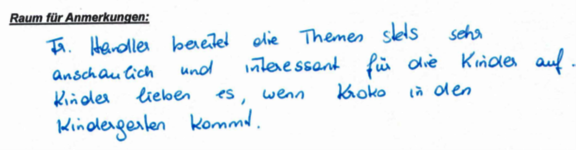 Raum für Anmerkungen:
Fr. Handler bereitet die Themen stets sehr
anschaulich und interessant für die Kinder auf.
Kinder lieben es, wenn Kroko in den
Kindergarten kommt.